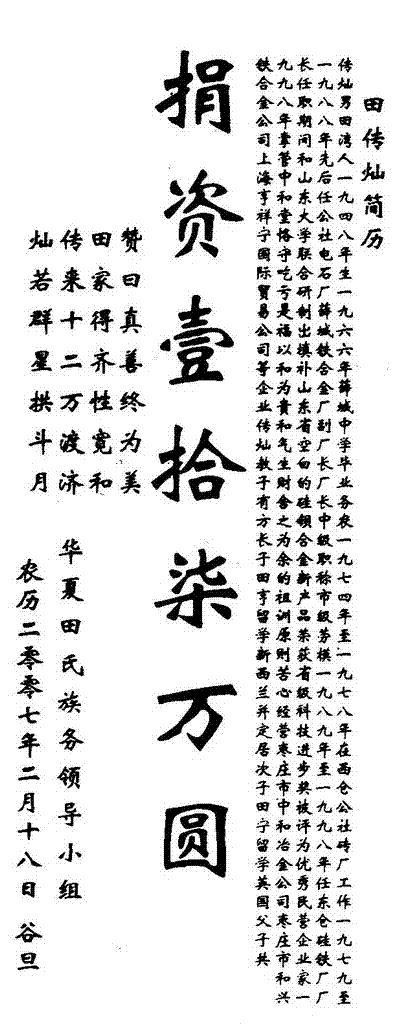 田传灿简历
传灿男田湾人一九四八年生一九六六年薛城中学毕业务农一九七四年至一九七八年在西仓公社砖厂工作一九七九至
一九八八年先后任公社电石厂薛城铁合金厂副厂长厂长中级职称市级劳模一九八九年至一九九八年任东仓硅铁厂厂
长任职期间和山东大学联合研制出填补山东省空白的硅钡合金新产品荣获省级科技进步奖被评为优秀民营企业家一
九九八年掌管中和堂恪守吃亏是福以和为贵和气生财舍之为余的祖训原则苦心经营枣庄市中和冶金公司枣庄市和兴
铁合金公司上海亨祥宁国际贸易公司等企业传灿教子有方长子田亨留学新西兰并定居次子田宁留学英国父子共
捐资壹拾柒万圆
赞曰真善终为美
田家得齐性宽和
传来十二万渡济
灿若群星拱斗月
华夏田氏族务领导小组
农历二零零七年二月十八日 谷旦